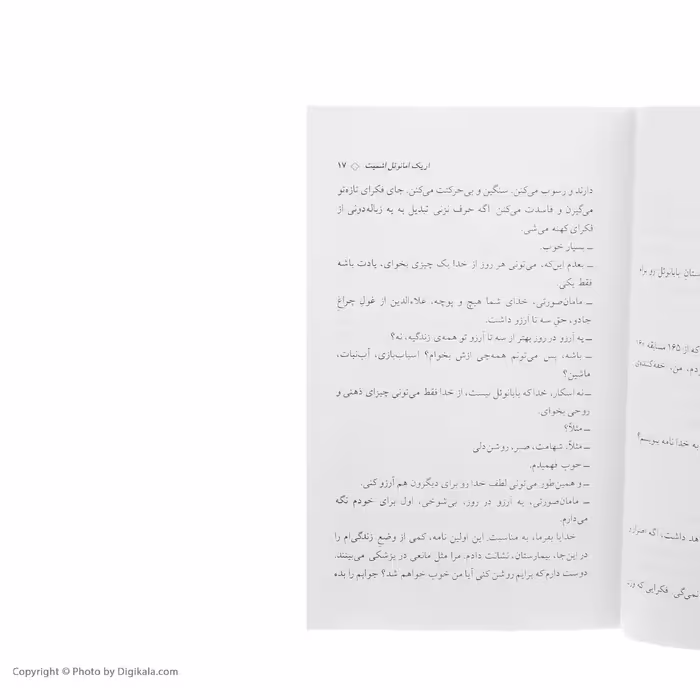 اریک امانوئل اشمیت ◇ ۱۷
دارند و رسوب می‌کنن. سنگین و بی‌حرکتت می‌کنن. جای فکرای تازه‌تو
می‌گیرن و فاسدت می‌کنن. اگه حرف نزنی تبدیل به یه زباله‌دونی از
فکرای کهنه می‌شی.
ــ بسیار خوب.
ــ بعدم این‌که، می‌تونی هر روز از خدا یک چیزی بخوای، یادت باشه
فقط یکی.
ــ مامان‌صورتی، خدای شما هیچ و پوچه، علاءالدین از غولِ چراغ
جادو، حقِ سه تا آرزو داشت.
ــ یه آرزو در روز بهتر از سه تا آرزو تو همه‌ی زندگیه، نه؟
ــ باشه، پس می‌تونم همه‌چی ازش بخوام؟ اسباب‌بازی، آب‌نبات،
ماشین؟
ــ نه اسکار، خدا که بابانوئل نیست، از خدا فقط می‌تونی چیزای ذهنی و
روحی بخوای.
ــ مثلاً؟
ــ مثلاً، شهامت، صبر، روشن‌دلی
ــ خوب فهمیدم.
ــ و همین‌طور می‌تونی لطف خدا رو برای دیگرون هم آرزو کنی.
ــ مامان‌صورتی، یه آرزو در روز، بی‌شوخی، اول برای خودم نگه
می‌دارم.
خدایا بفرما، به مناسبت این اولین نامه، کمی از وضعِ زندگی‌ام را
در این‌جا، بیمارستان، نشانت دادم. مرا مثل مانعی در پزشکی می‌بینند.
دوست دارم که برایم روشن کنی آیا من خوب خواهم شد؟ جوابم را بده
بابانوئل رو برام
که از، ۱۶۵ مسابقه ۱۶۰
من، خفه‌کننده‌ی
به خدا نامه بنویسم؟
داشت، اگه
نمی‌گی. فکرایی که
Copyright © Photo by Digikala.com